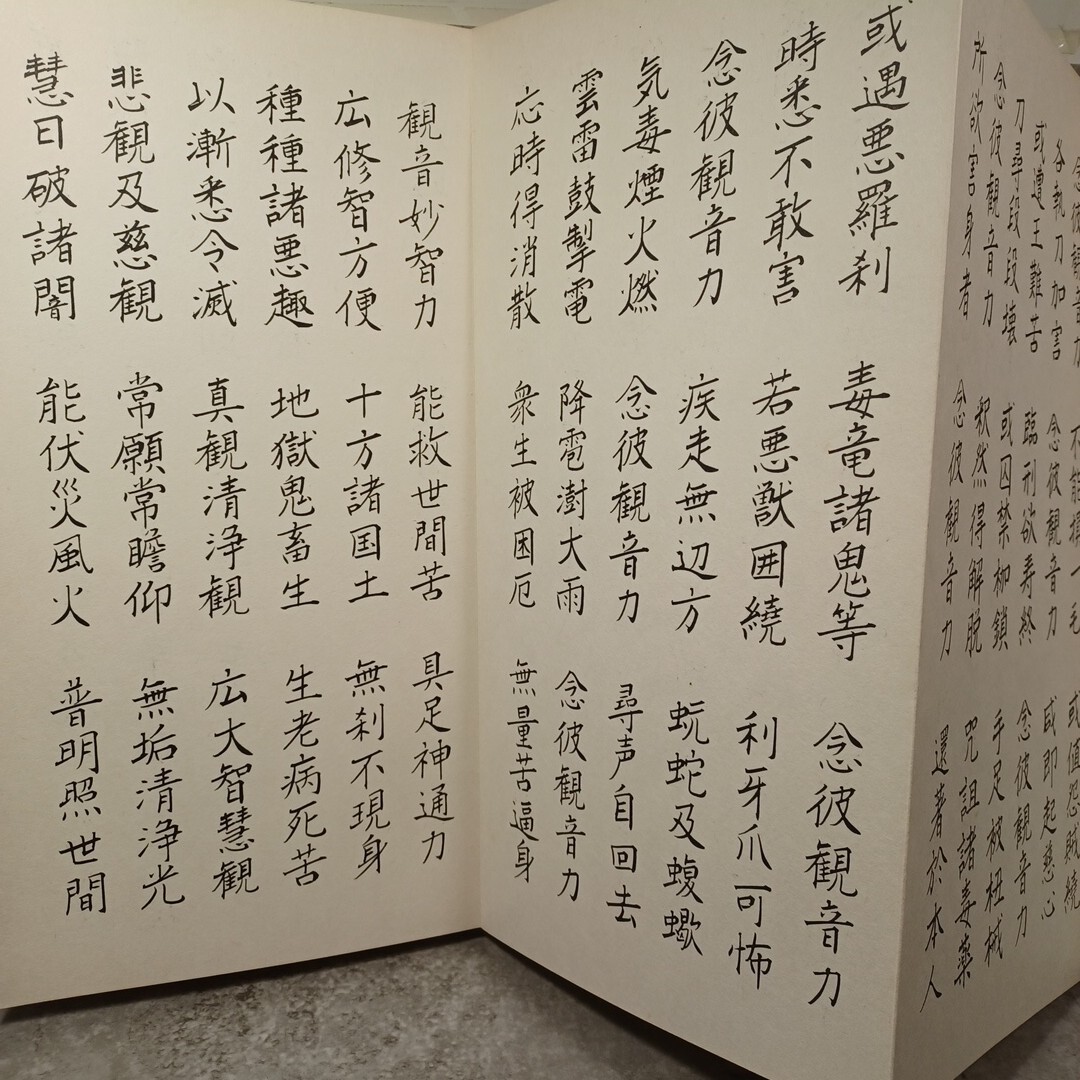 念彼観音力 不能損一毛 或値怨賊繞
各執刀加害 念彼観音力 咸即起慈心
或遭王難苦 臨刑欲寿終 念彼観音力
刀尋段段壊 或囚禁枷鎖 手足被杻械
念彼観音力 釈然得解脱 呪詛諸毒薬
所欲害身者 念彼観音力 還著於本人
或遇悪羅刹 毒竜諸鬼等 念彼観音力
時悉不敢害 若悪獣囲繞 利牙爪可怖
念彼観音力 疾走無辺方 蚖蛇及蝮蠍
気毒煙火燃 念彼観音力 尋声自回去
雲雷鼓掣電 降雹澍大雨 念彼観音力
応時得消散 衆生被困厄 無量苦逼身
観音妙智力 能救世間苦 具足神通力
広修智方便 十方諸国土 無刹不現身
種種諸悪趣 地獄鬼畜生 生老病死苦
以漸悉令滅 真観清浄観 広大智慧観
悲観及慈観 常願常瞻仰 無垢清浄光
慧日破諸闇 能伏災風火 普明照世間